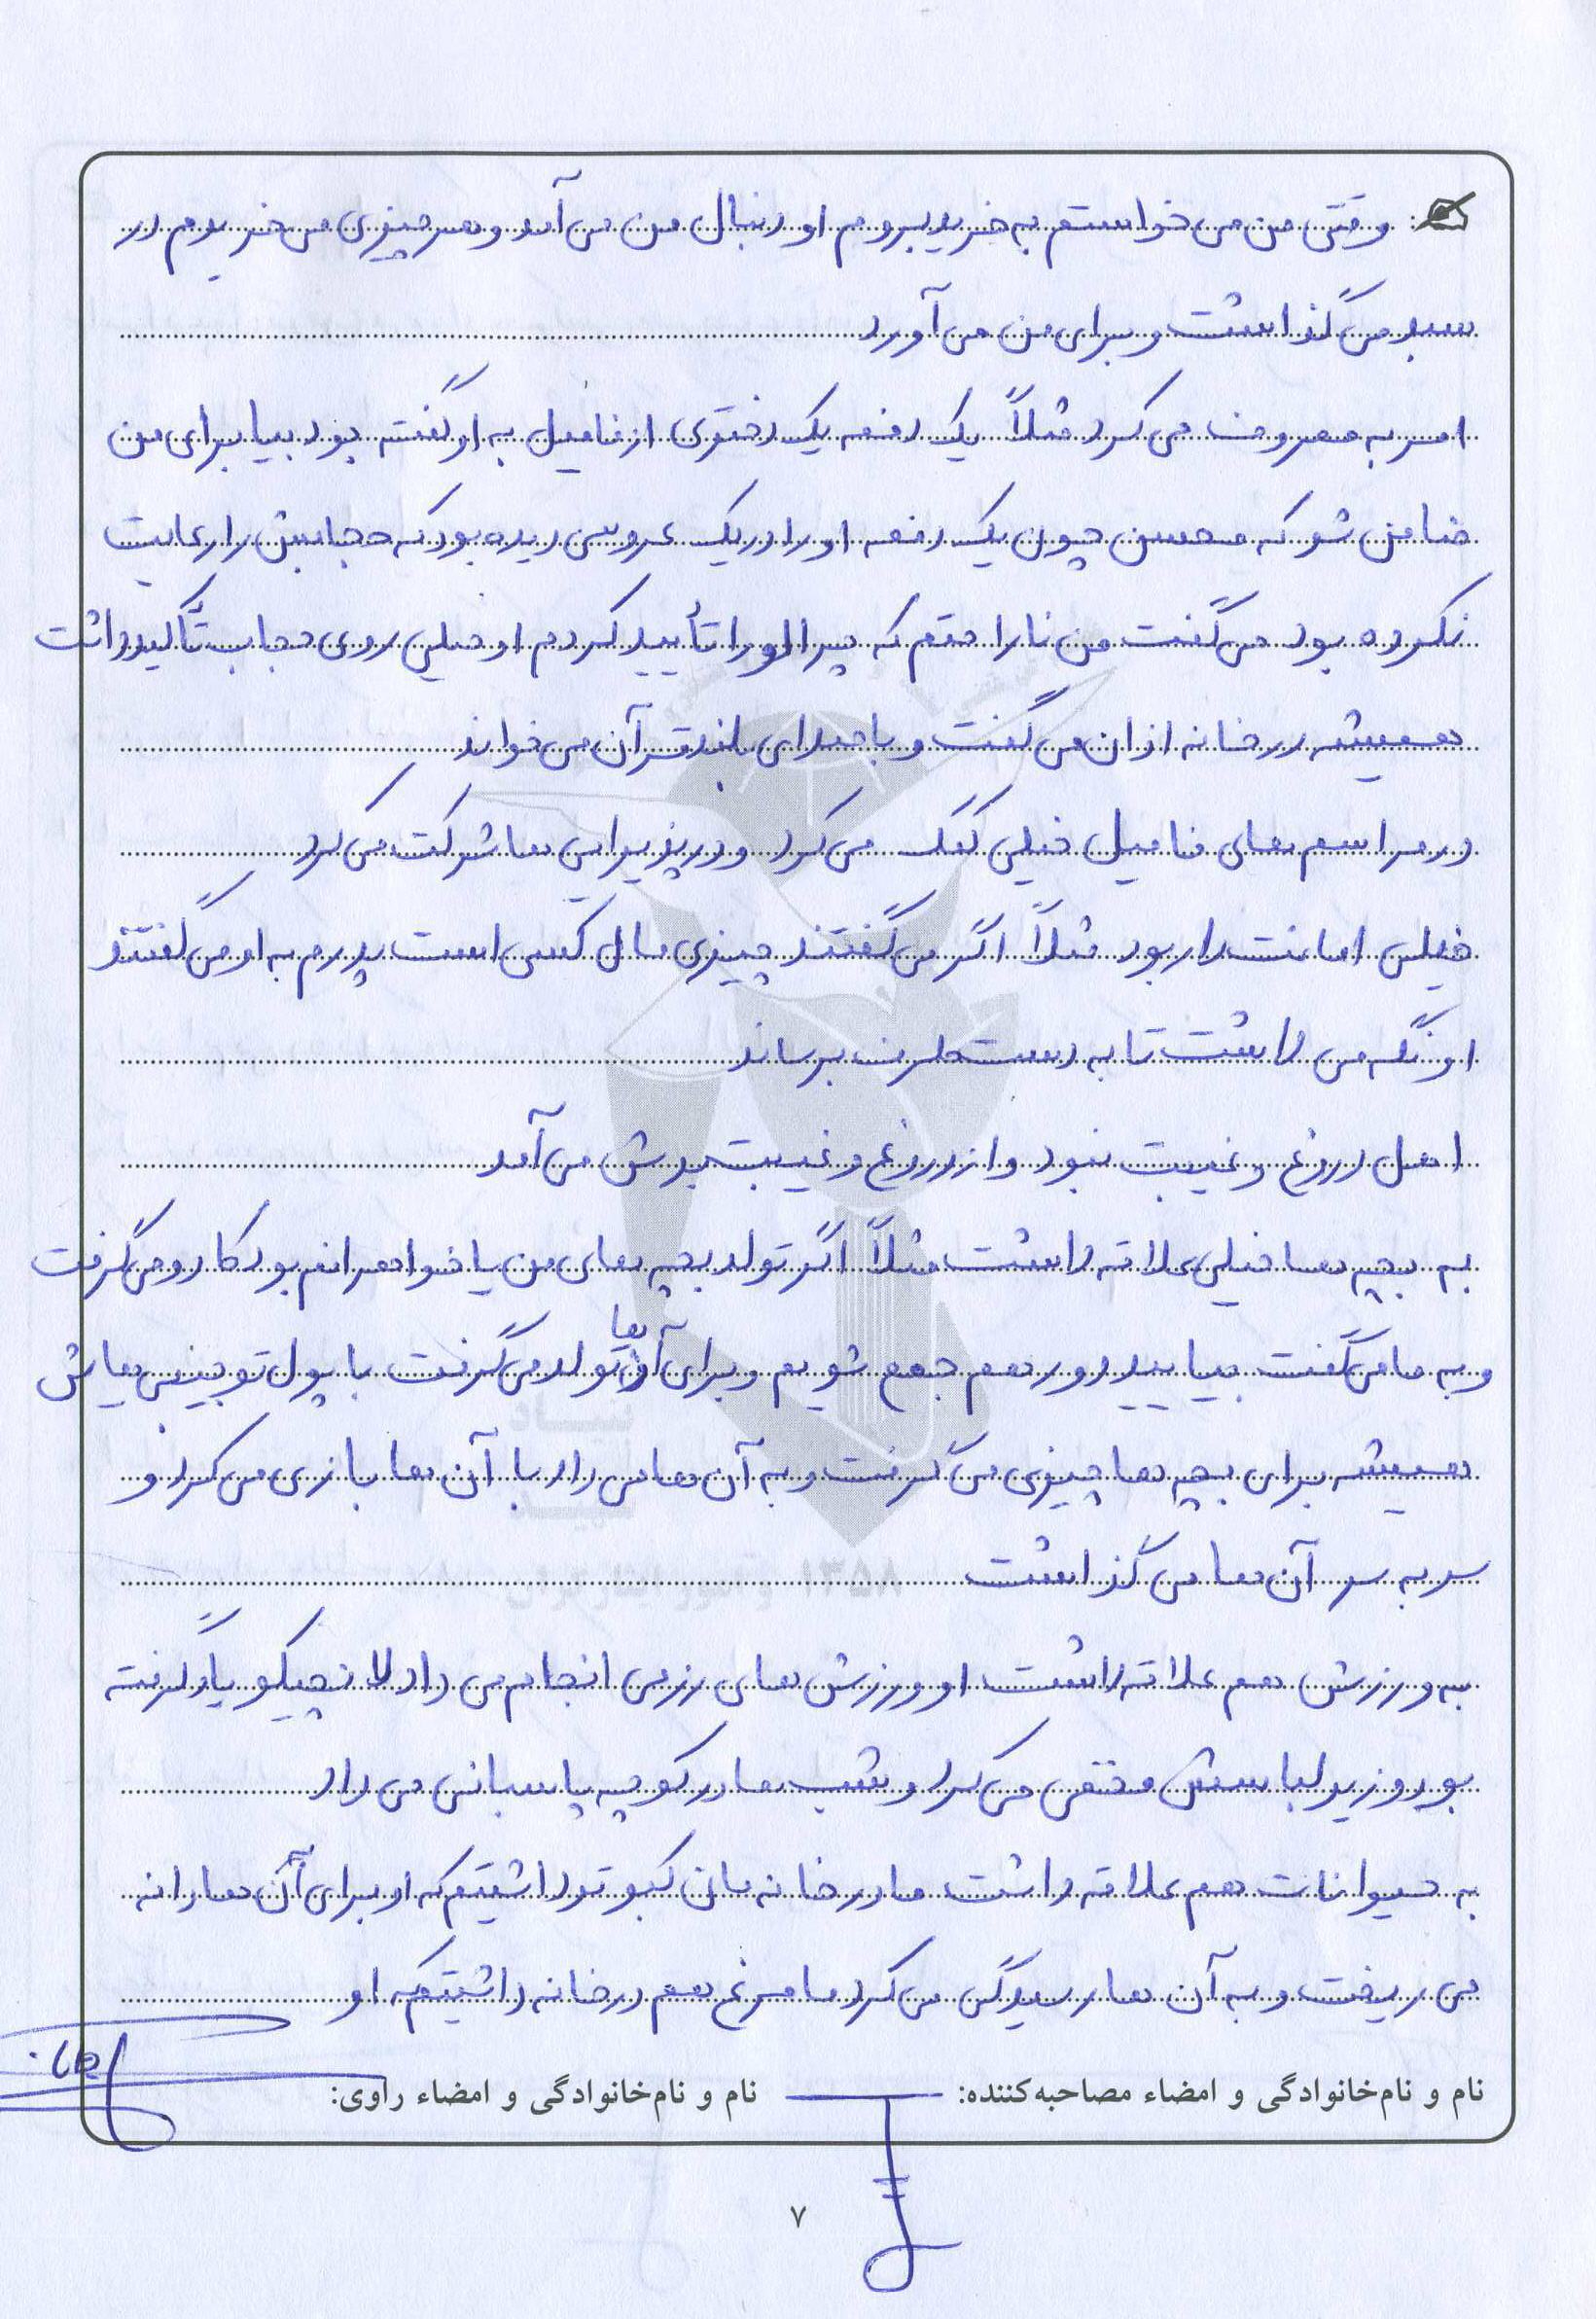 وقتی من می خواستم به خرید بروم او دنبال من می آمد و هر چیزی می خریدم در
سبد می گذاشت و برای من می آورد
امر به معروف می کرد مثلاً یک دفعه یک دختری از فامیل به او گفته بود بیا برای من
ضامن شو که محسن چون یک دفعه او را در یک عروسی دیده بود که حجابش را رعایت
نکرده بود می گفت من ناراحتم که چرا او را تأیید کردم او خیلی روی حجاب تأکید داشت
همیشه در خانه اذان می گفت و با صدای بلند قرآن می خواند
در مراسم های فامیل خیلی کمک می کرد و در پذیرایی ها شرکت می کرد
خیلی امانت دار بود مثلاً اگر می گفتند چیزی مال کسی است پدرم به او می گفتند
او نگه می داشت تا به دست طرف برساند
اهل دروغ و غیبت نبود و از دروغ و غیبت بدش می آمد
به بچه ها خیلی علاقه داشت مثلاً اگر تولد بچه های من یا خواهرانم بود کادو می گرفت
و به ما می گفت بیایید دور هم جمع شویم و برای آن ها تولد می گرفت با پول توجیبی هایش
همیشه برای بچه ها چیزی می گرفت و به آن ها می داد با آن ها بازی می کرد و
سر به سر آن ها می گذاشت
به ورزش هم علاقه داشت او ورزش های رزمی انجام می داد نانچیکو یاد گرفته
بود و زیر لباسش مخفی می کرد و شب ها در کوچه پاسبانی می داد
به حیوانات هم علاقه داشت ما در خانه مان کبوتر داشتیم که او برای آن ها دانه
می ریخت و به آن ها رسیدگی می کرد ما مرغ هم در خانه داشتیم که او
نام و نام‌خانوادگی و امضاء مصاحبه‌کننده: نام و نام‌خانوادگی و امضاء راوی:
۷